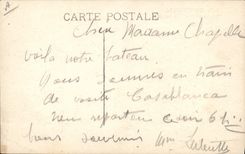 A
CARTE POSTALE
Chère Madame Chapelle
voila notre bateau.
Nous sommes en train
de visiter Casablanca
nous repartons ce soir 6 h
bons souvenirs Mme